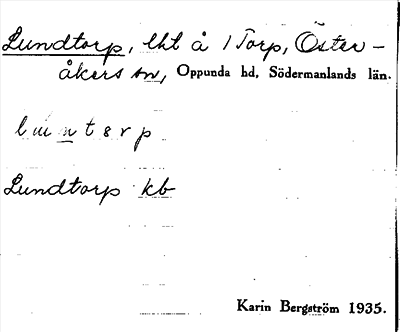 Lundtorp, lht å 1 Torp, Öster-
åkers sn, Oppunda hd, Södermanlands län.
luntərp
Lundtorp kb
Karin Bergström 1935.